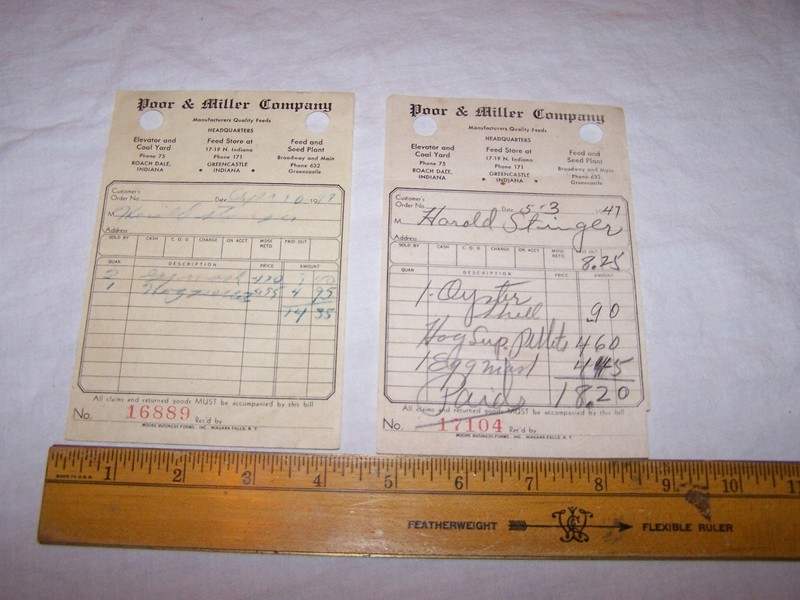 Poor & Miller Company
Manufacturers Quality Feeds
HEADQUARTERS
Elevator and Coal Yard
Phone 75
ROACH DALE, INDIANA
Feed Store at
17-19 N. Indiana
Phone 171
GREENCASTLE
• INDIANA •
Feed and Seed Plant
Broadway and Main
Phone 632
Greencastle
Customer's Order No. Date 10 19
M
Address
SOLD BY CASH C. O. D. CHARGE ON ACCT. MDSE. RETD. PAID OUT
QUAN. DESCRIPTION PRICE AMOUNT
2
1 4 95
14 35
All claims and returned goods MUST be accompanied by this bill
No. 16889 Rec'd by
MOORE BUSINESS FORMS, INC., NIAGARA FALLS, N. Y.
Poor & Miller Company
Manufacturers Quality Feeds
HEADQUARTERS
Elevator and Coal Yard
Phone 75
ROACH DALE, INDIANA
Feed Store at
17-19 N. Indiana
Phone 171
GREENCASTLE
• INDIANA •
Feed and Seed Plant
Broadway and Main
Phone 632
Greencastle
Customer's Order No. Date 5-3 1947
M Harold Stinger
Address
SOLD BY CASH C. O. D. CHARGE ON ACCT. MDSE. RETD. PAID OUT
8.25
QUAN. DESCRIPTION PRICE AMOUNT
1- Oyster
Shell .90
Hog Sup. Pellets 4 60
1 Egg mash 4 45
Paid 18.20
All claims and returned goods MUST be accompanied by this bill
No. 17104 Rec'd by
MOORE BUSINESS FORMS, INC., NIAGARA FALLS, N. Y.
MADE IN U.S.A.
1 2 3 4 5 6 7 8 9 10 11
FEATHERWEIGHT FLEXIBLE RULER